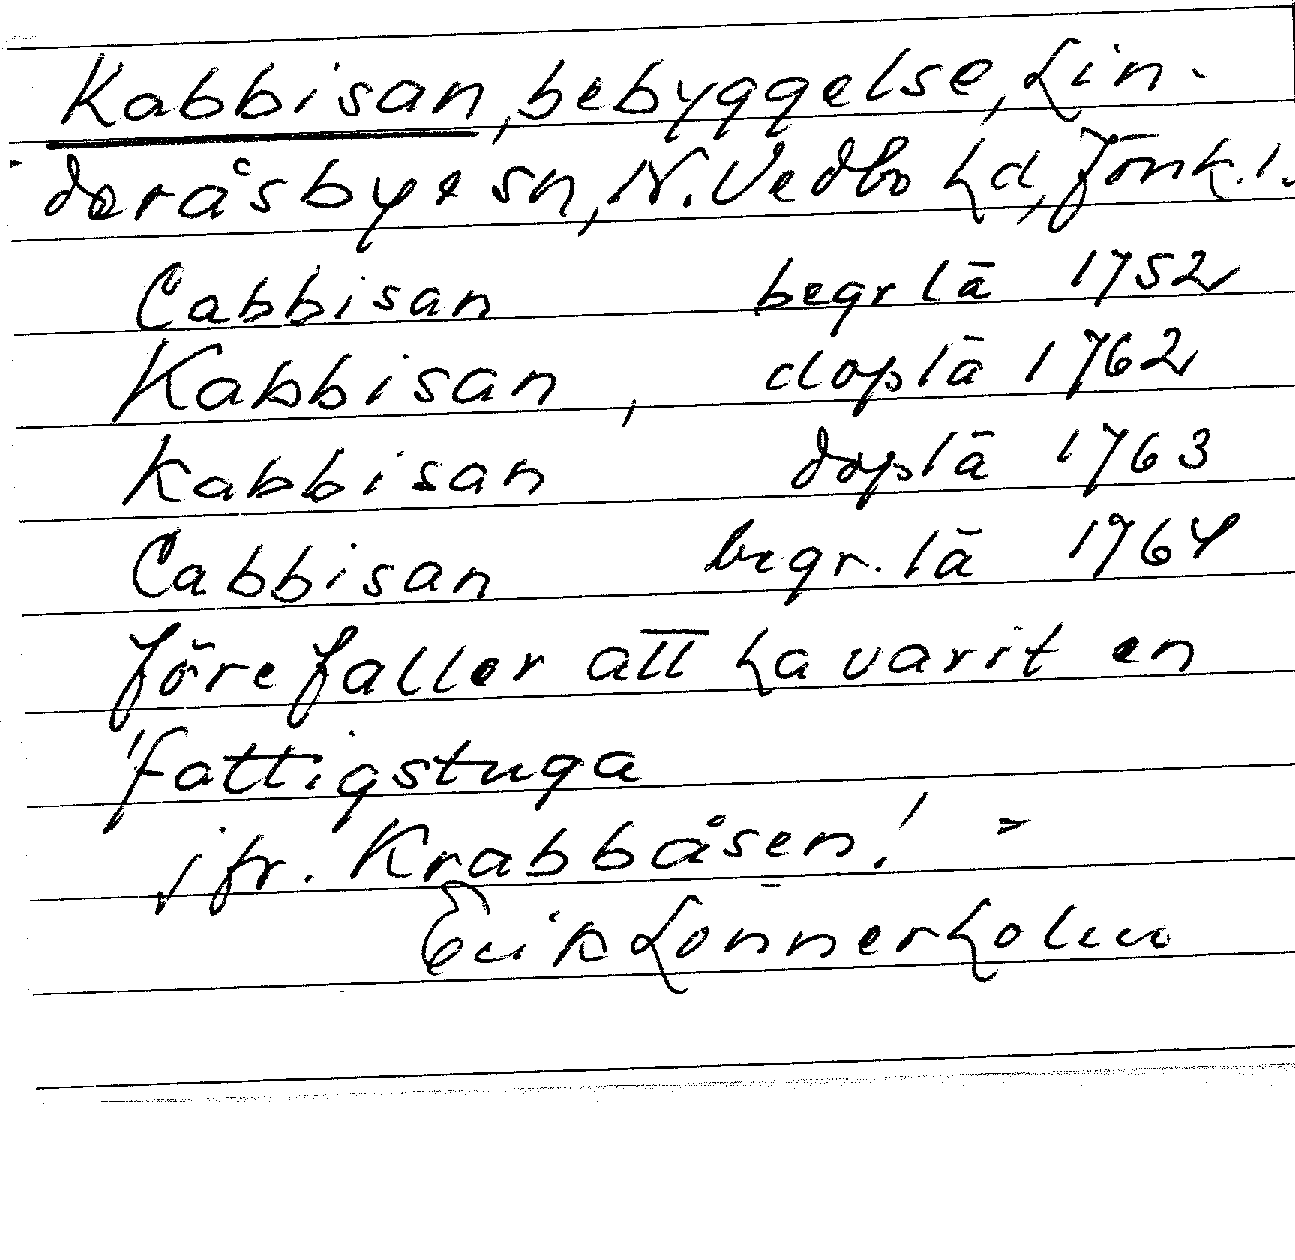 Kabbisan, bebyggelse, Lin-
deråsbygsn, N. Vedbo hd, Jönk. l.
Cabbisan begr lä 1752
Kabbisan, doplä 1762
Kabbisan doplä 1763
Cabbisan begr. lä 1764
förefaller att ha varit en
'fattigstuga
jfr. Krabbåsen! =
Erik Lönnerholm